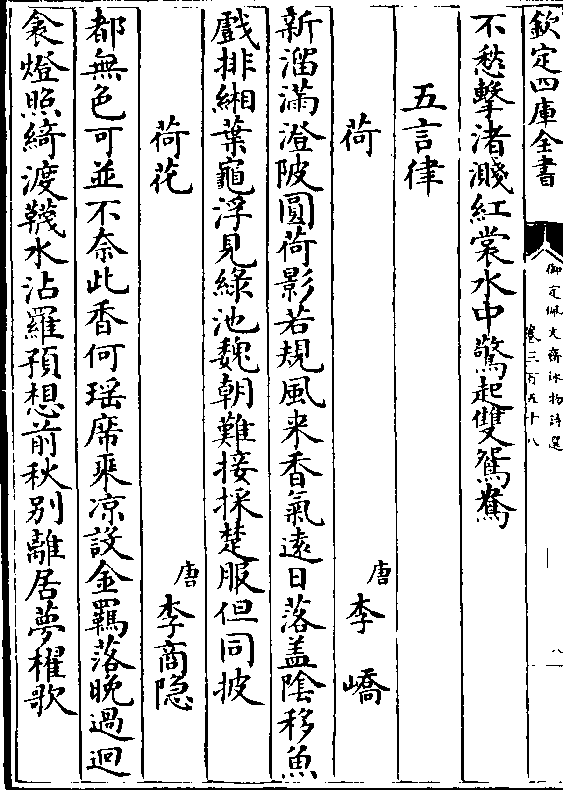 欽定四庫全書
御定佩文齋詠物詩選
卷三百五十八
八
不愁擊渚濺紅裳水中驚起雙鴛鴦
五言律
荷
唐 李嶠
新溜滿澄陂圓荷影若規風来香氣遠日落盖陰移魚
戲排緗葉龜浮見綠池魏朝難接採楚服但同披
荷花
唐 李商隐
都無色可並不奈此香何瑶席乗凉設金羈落晚過迴
衾燈照綺渡韈水沾羅預想前秋别離居夢櫂歌